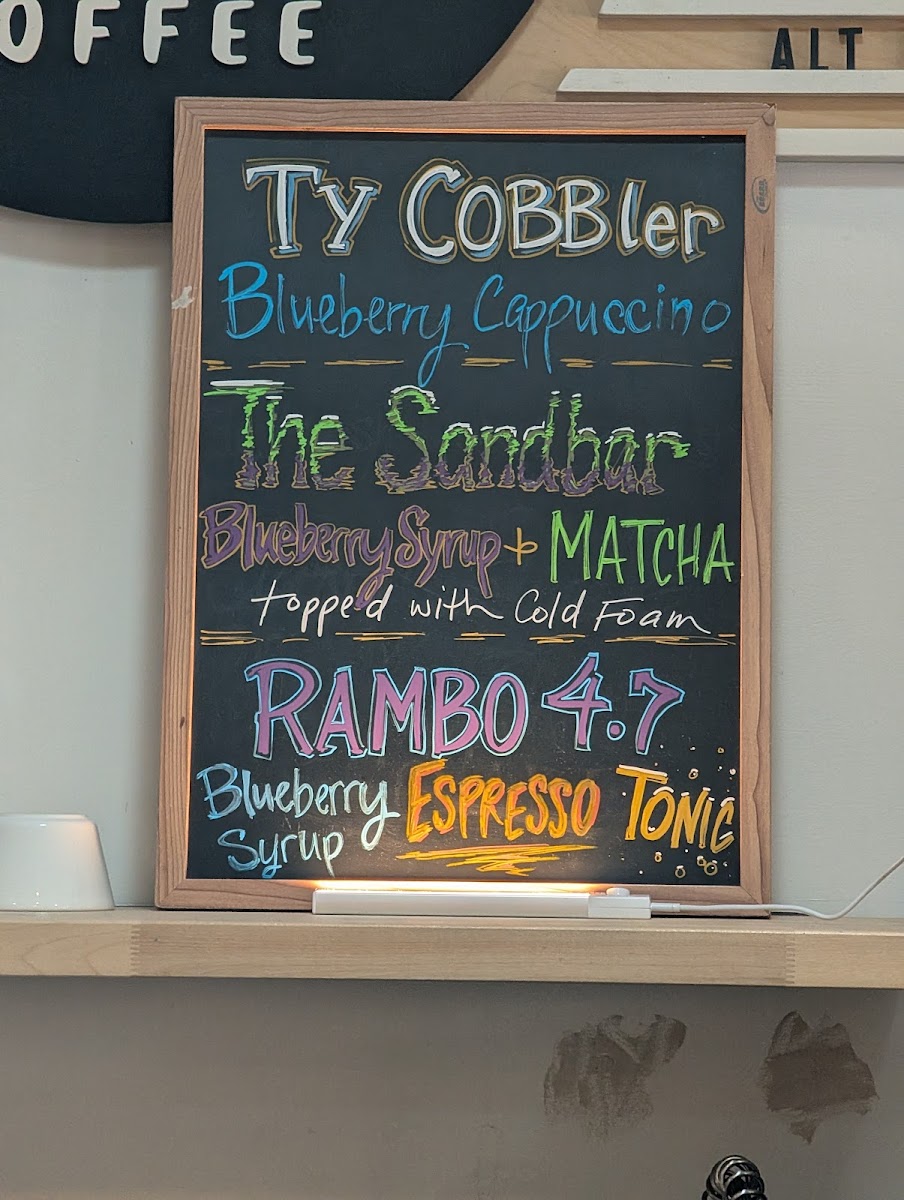 OFFEE
ALT
Ty CoBBler
Blueberry Cappuccino
The Sandbar
Blueberry Syrup + MATCHA
topped with Cold Foam
RAMBO 4.7
Blueberry Syrup ESPRESSO TONIC